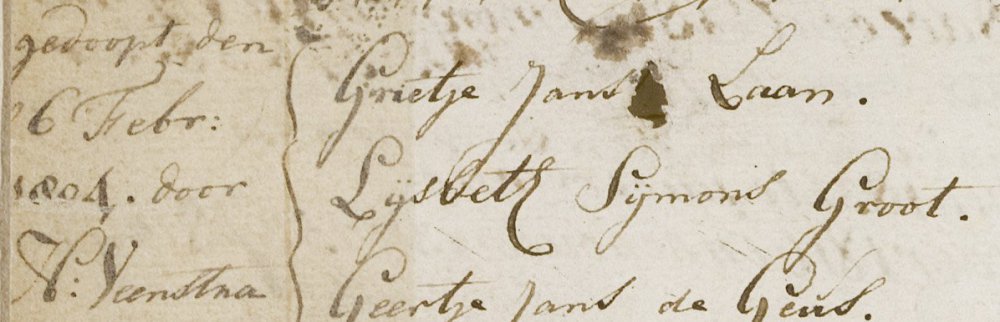 gedoopt den
16 Febr:
1804. door
H: Veenstra
Grietje Jans Laan.
Lijsbeth Sijmons Groot.
Geertje Jans de Geus.